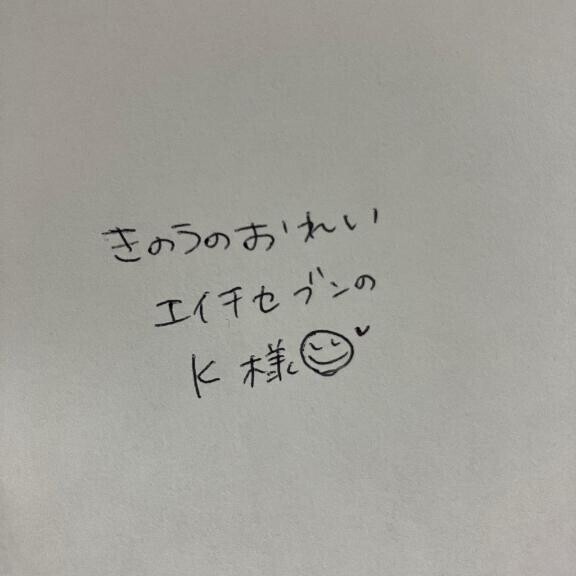 きのうのおれい
エイチセブンの
K様